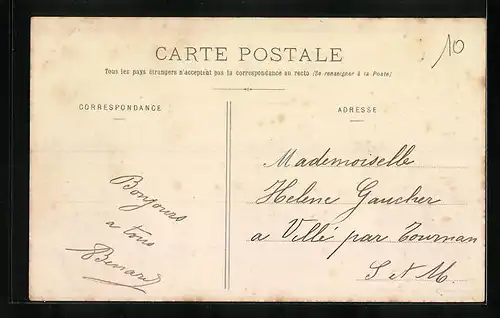 CARTE POSTALE
10
Tous les pays étrangers n'acceptent pas la correspondance au recto (Se renseigner à la Poste)
CORRESPONDANCE
ADRESSE
Bonjours
a tous
Benard
Mademoiselle
Helene Gaucher
a Villé par Tournan
S et M.